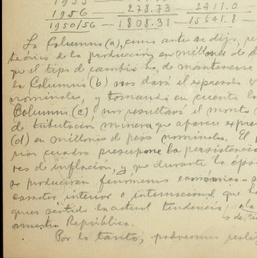 1955
1956 - 278.73 - 2411.0
1950/56 - 1808.31 - 15641.8
La Columna (a), como antes se dijo, re
de la producción en millones de d
que el tipo de cambio ha de mantenerse
la Columna (b) nos dará el expresado v
nominales, tomando en cuenta la
Columna (c), nos resultará el monto
de tributación minera que aparece expre
(d) en millones de pesos nominales. El
rior cuadro presupone la persistencia
res de inflación, y que durante la épo
se produzcan fenómenos económico-s
carácter interior o internacional que
sentido la actual tendencia
nuestra República.
Por lo tanto, podremos